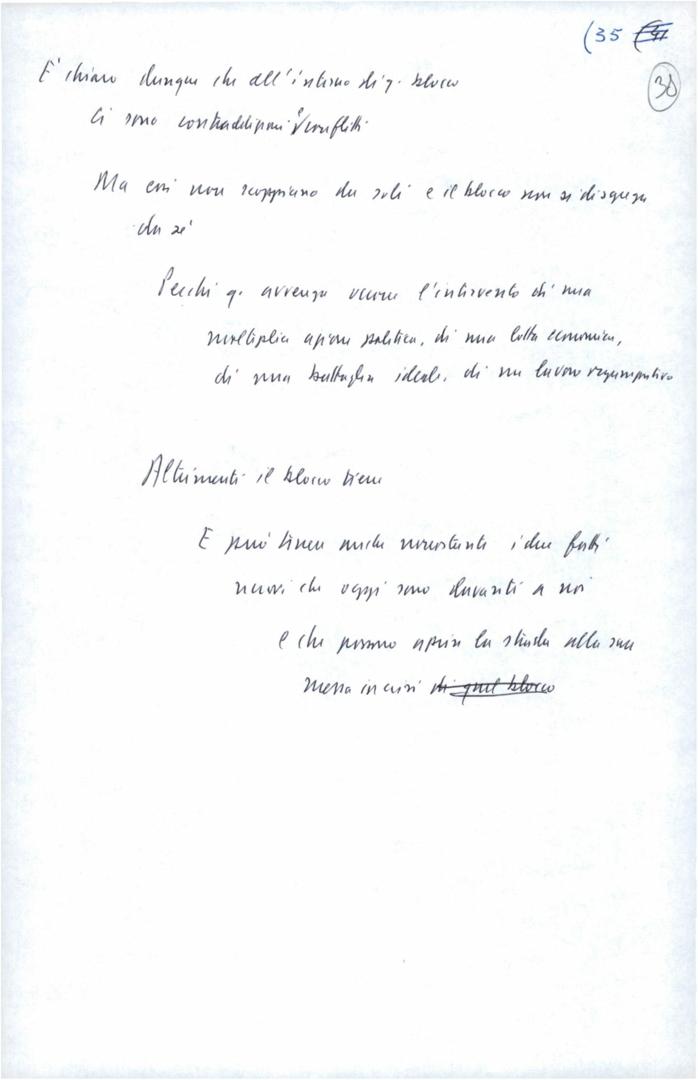 (35
30
E' chiaro dunque che all'interno di q. blocco
ci sono contraddizioni e conflitti
Ma essi non scoppiano da soli e il blocco non si disgrega
da sé
Perché q. avvenga occorre l'intervento di una
molteplice azione politica, di una lotta economica,
di una battaglia ideale, di un lavoro
Altrimenti il blocco tiene
E può tenere anche nonostante i due fatti
nuovi che oggi sono davanti a noi
e che possono aprire la strada alla sua
messa in crisi di quel blocco